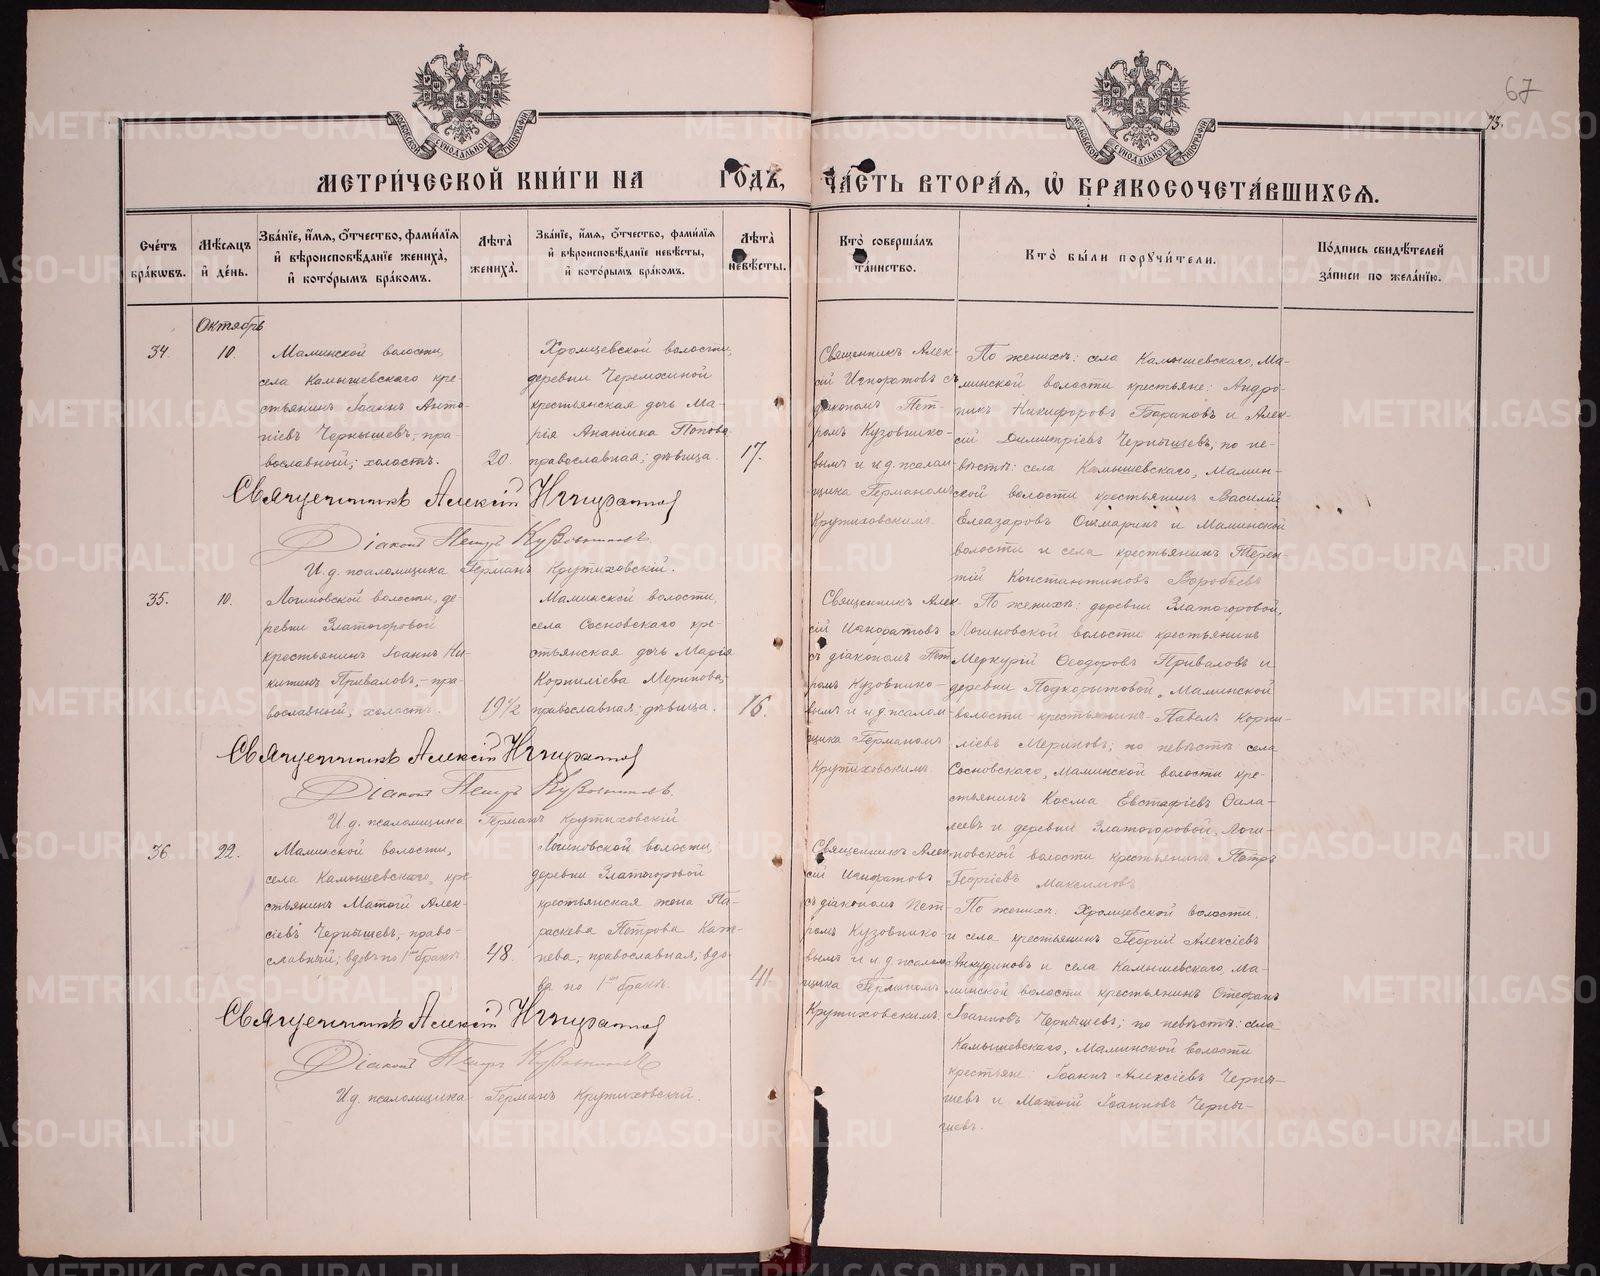 67
73.
МОСКОВСКОЙ СѴНОДАЛЬНОЙ ТИПОГРАФІИ
МОСКОВСКОЙ СѴНОДАЛЬНОЙ ТИПОГРАФІИ
МЕТРИ́ЧЕСКОЙ КНИ́ГИ НА ГОДЪ, ЧА́СТЬ ВТОРА́Я, Ѡ БРАКОСОЧЕТА́ВШИХСЯ.
Сче́тъ бра́кѡвъ.
Мѣ́сяцъ и҆ де́нь.
Зва́нїе, и҆́мя, ѻ҆́тчество, фами́лїя
и҆ вѣроисповѣ́данїе жениха̀,
и҆ кото́рымъ бра́комъ.
Лѣта̀ жениха̀.
Зва́нїе, и҆́мя, ѻ҆́тчество, фами́лїя
и҆ вѣроисповѣ́данїе невѣ́сты,
и҆ кото́рымъ бра́комъ.
Лѣта̀ невѣ́сты.
Кто̀ соверша́лъ
та́инство.
Кто̀ бы́ли порꙋчи́тели.
По́дпись свидѣ́телей
за́писи по жела́нїю.
Октябрь
34.
10.
Маминской волости,
села Камышевскаго кре-
стьянинъ Іоаннъ Анто-
ніевъ Чернышевъ, пра-
вославный; холостъ.
20.
Хромцевской волости,
деревни Черемхиной
крестьянская дочь Ма-
рія Ананіина Попова
православная; дѣвица.
17.
Священникъ Алек-
сій Игноратовъ съ
діакономъ Пет-
ромъ Кузовнико-
вымъ и и.д. псалом-
щика Германомъ
Крутиховскимъ.
По женихѣ: села Камышевскаго, Ма-
минской волости крестьяне: Андро-
никъ Никифоровъ Барановъ и Алек-
сій Димитріевъ Чернышевъ; по не-
вѣстѣ: села Камышевскаго, Мамин-
ской волости крестьянинъ Василій
Елеазаровъ и Маминской
волости и села крестьянинъ Терен-
тій Константиновъ Воробьевъ
Священникъ Алексій
Діаконъ Петръ Кузовниковъ.
И.д. псаломщика Германъ Крутиховскій.
35.
10.
Логиновской волости, де-
ревни Златогоровой
крестьянинъ Іоаннъ Ни-
китинъ Приваловъ, пра-
вославный; холостъ.
19 1/2
Маминской волости,
села Сосновскаго кре-
стьянская дочь Марія
Корниліева Меринова,
православная; дѣвица.
16.
Священникъ Алек-
сій Игноратовъ
съ діакономъ Пет-
ромъ Кузовнико-
вымъ и и.д. псалом-
щика Германомъ
Крутиховскимъ.
По женихѣ: деревни Златогоровой,
Логиновской волости крестьянинъ
Меркурій Ѳеодоровъ Приваловъ и
деревни Подкорытовой, Маминской
волости крестьянинъ Павелъ Корни-
ліевъ Мериновъ; по невѣстѣ села
Сосновскаго, Маминской волости кре-
стьянинъ Косма Евстафіевъ
и деревни Златогоровой, Логи-
новской волости крестьянинъ Петръ
Георгіевъ Максимовъ.
Священникъ Алексій
Діаконъ Петръ Кузовниковъ.
И.д. псаломщика Германъ Крутиховскій
36
22.
Маминской волости,
села Камышевскаго, кре-
стьянинъ Матѳій Алек-
сіевъ Чернышевъ, право-
славный; вдовъ по 1мъ бракѣ
48.
Логиновской волости,
деревни Златогоровой
крестьянская жена Па-
раскева Петрова
православная; вдо-
ва по 1мъ бракѣ.
41.
Священникъ Алек-
сій Игноратовъ
съ діакономъ Пет-
ромъ Кузовнико-
вымъ и и.д. псалом-
щика Германомъ
Крутиховскимъ.
По женихѣ: Хромцевской волости
и села крестьянинъ Георгій Алексіевъ
Анкудиновъ и села Камышевскаго, Ма-
минской волости крестьянинъ Стефанъ
Іоанновъ Чернышевъ; по невѣстѣ: села
Камышевскаго, Маминской волости
крестьяне: Іоаннъ Алексіевъ Черны-
шевъ и Матѳій Іоанновъ Черны-
шевъ.
Священникъ Алексій
Діаконъ Петръ Кузовниковъ
И.д. псаломщика Германъ Крутиховскій.
METRIKI.GASO-URAL.RU